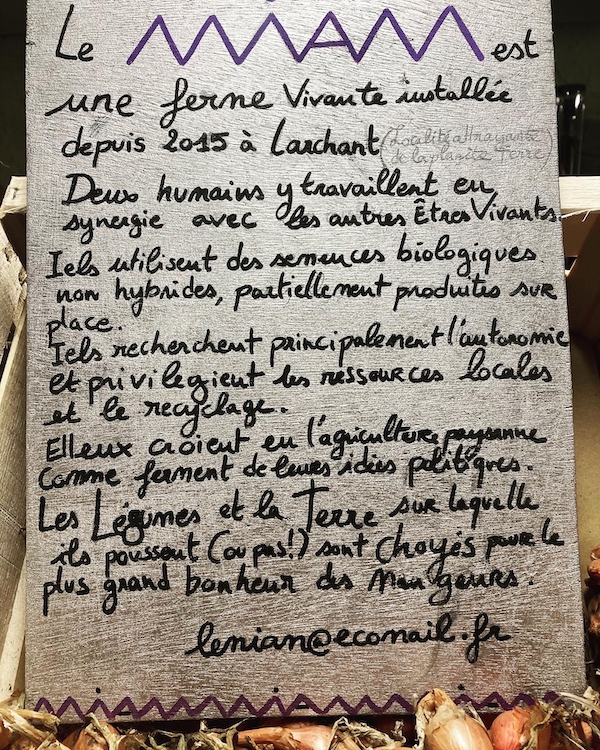 Le MIAM est
une ferme Vivante installée
depuis 2015 à Larchant (Localité attrayante
de la planète Terre)
Deux humains y travaillent en
synergie avec les autres Êtres Vivants.
Iels utilisent des semences biologiques
non hybrides, partiellement produites sur
place.
Iels recherchent principalement l'autonomie
et privilégient les ressources locales
et le recyclage.
Elleux croient en l'agriculture paysanne
comme ferment de leurs idées politiques.
Les Légumes et la Terre sur laquelle
ils poussent (ou pas!) sont choyés pour le
plus grand bonheur des Mangeurs.
lemiam@ecomail.fr